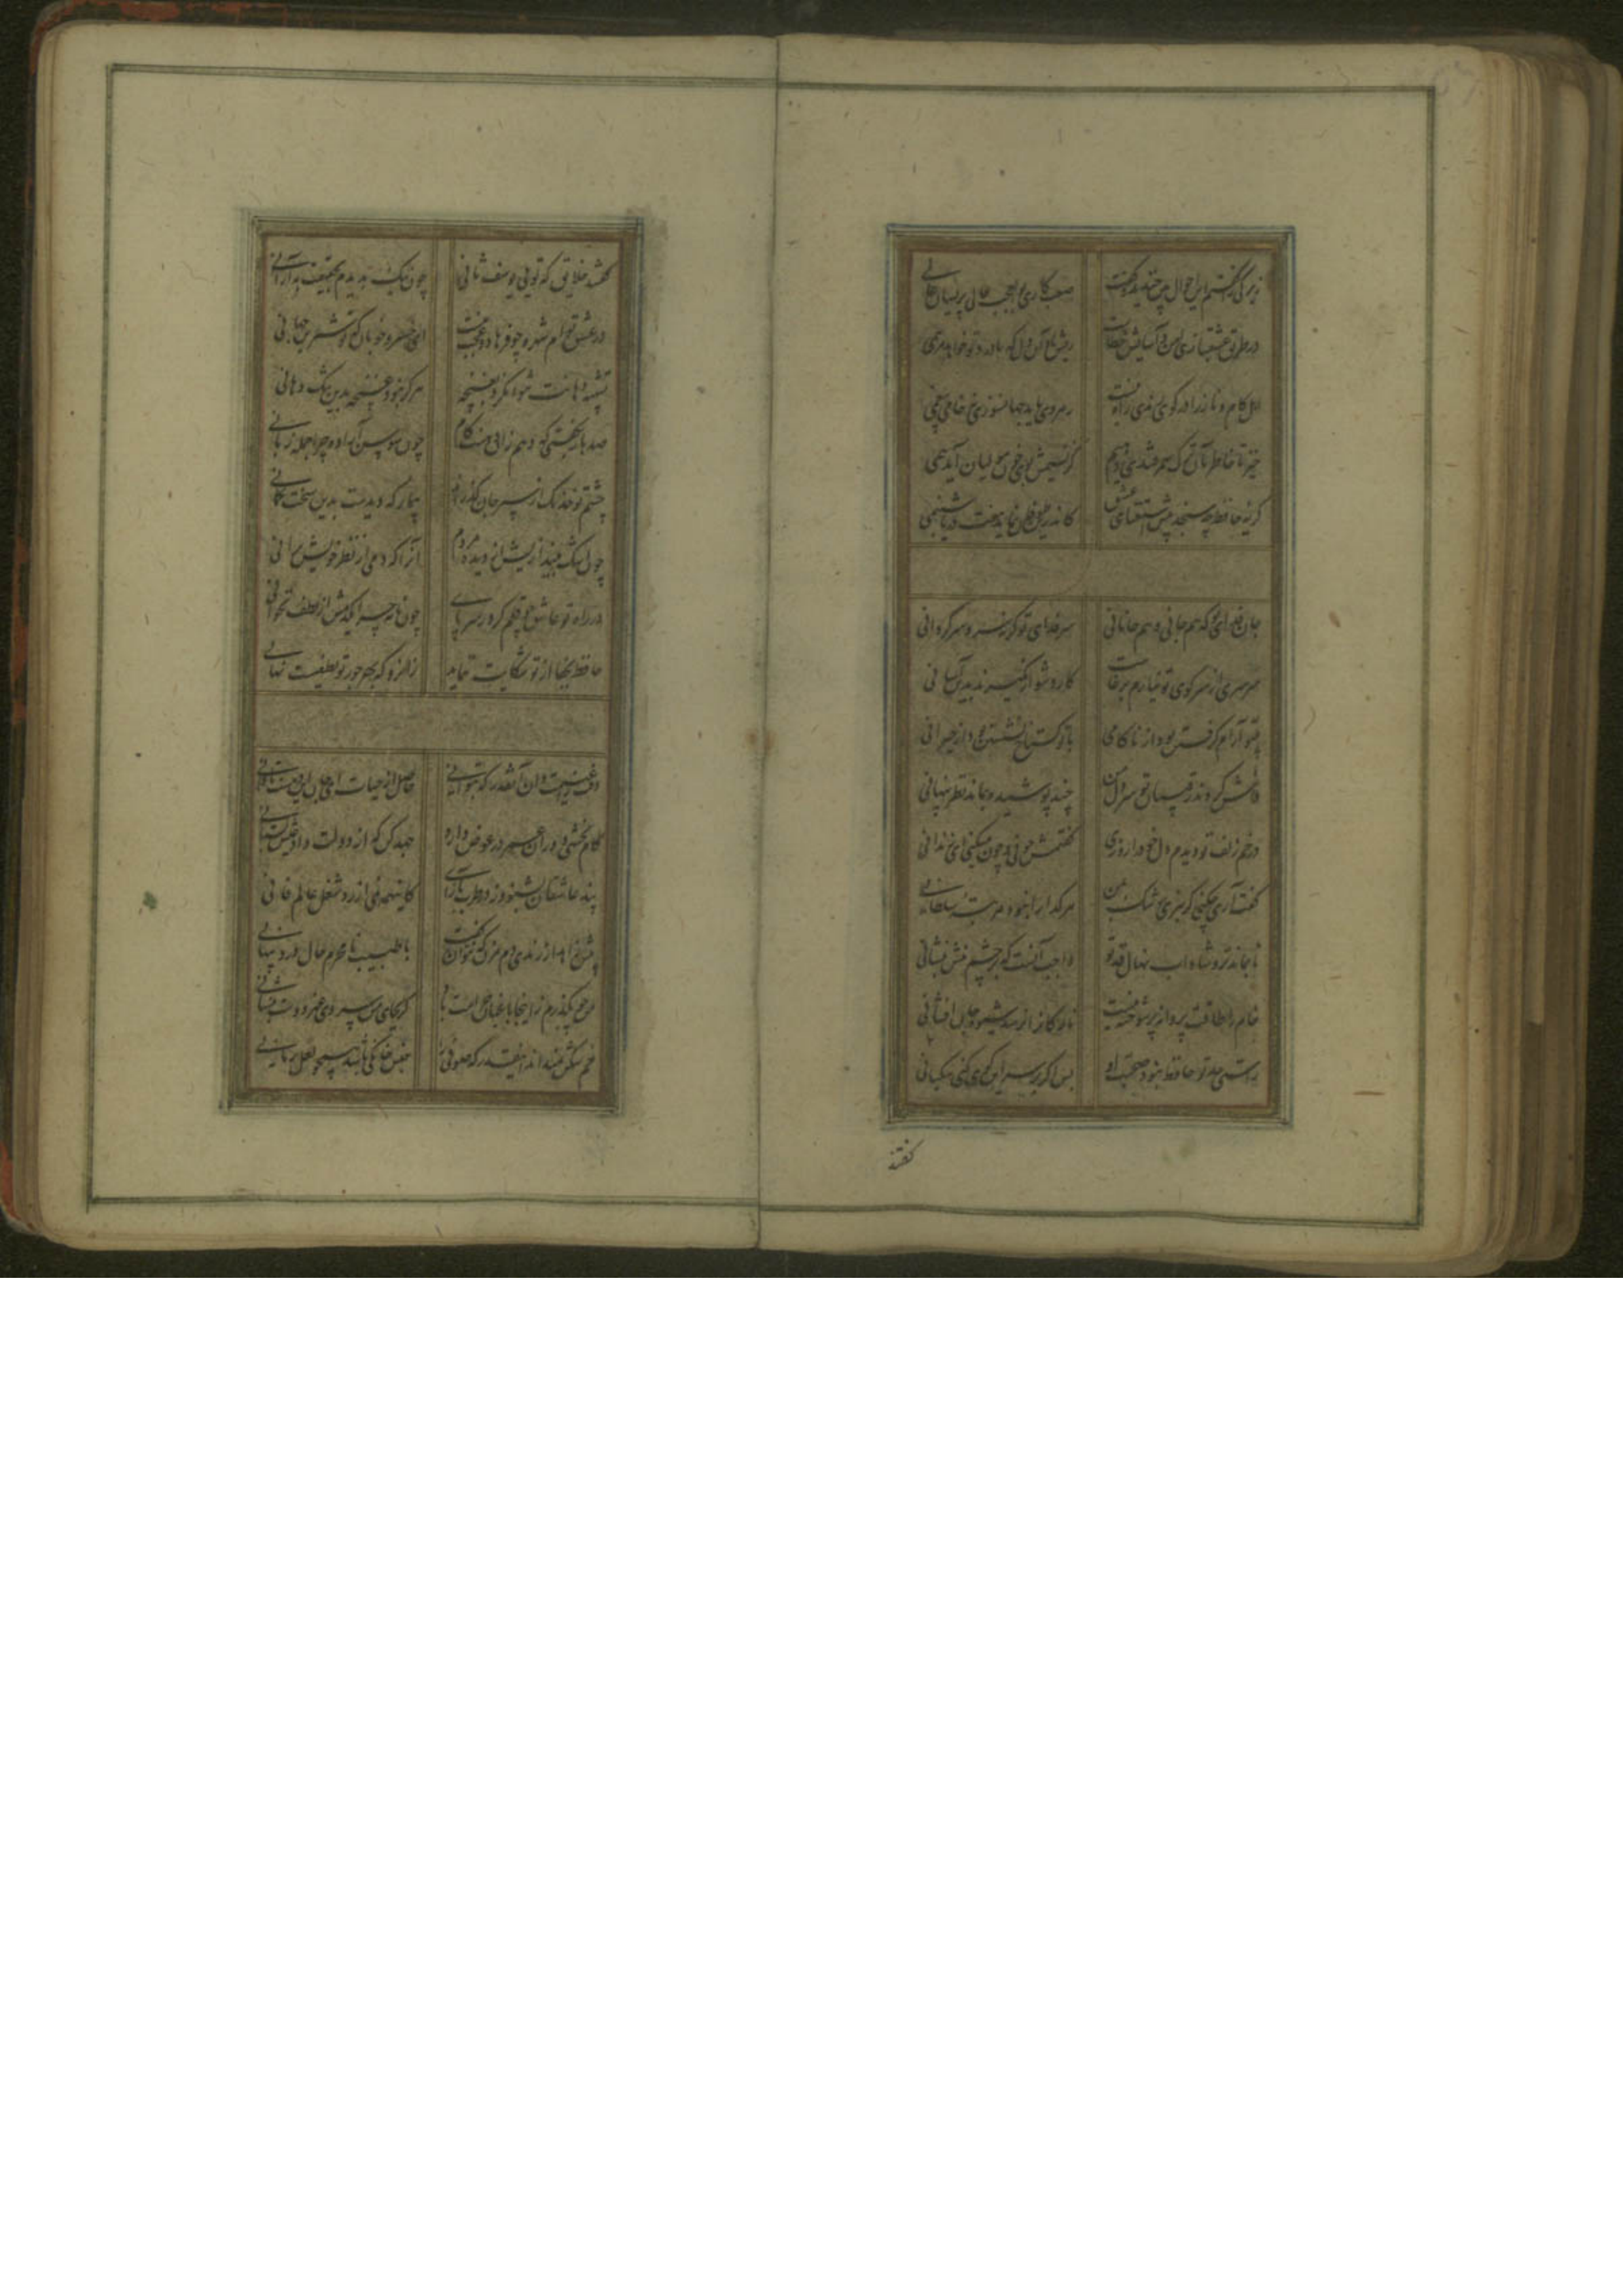 زیرکی را گفتم این احوال بین خندید و گفت صعب کاری بوالعجب حالی پریشان عالمی
در طریق عشقبازی امن و آسایش خطاست ریش باد آن دل که با درد تو خواهد مرهمی
اهل کام و ناز را در کوی رندی راه نیست رهروی باید جهانسوزی نه خامی بیغمی
خیز تا خاطر بدان ترک سمرقندی دهیم کز نسیمش بوی جوی مولیان آید همی
گریه حافظ چه سنجد پیش استغنای عشق کاندرین طوفان نماید هفت دریا شبنمی
جان فدای تو که هم جانی و هم جانانی سر فدای تو که سر و سرگردانی
سرسری از سر کوی تو نیارم برخاست کار دشوار نگیرند بدین آسانی
بی تو آرام گرفتن بود از ناکامی با تو گستاخ نشستن بود از حیرانی
فاش کردند رقیبان تو سر دل من چند پوشیده بماند نظر پنهانی
در خم زلف تو دیدم دل خود را روزی گفتمش چونی و چون میکنی ای زندانی
گفت آری چکنی گر نبری رشک بمن هر گدا را نبود مرتبه سلطانی
تا بماند تر و شاداب نهال قد تو واجب آنست که بر چشم منش بنشانی
خام را طاقت پروانه پر سوخته نیست نازکان را نرسد شیوه جان افشانی
راستی حد تو حافظ نبود صحبت او بس اگر بر سر این کوی کنی سگبانی
گفتند
گفتند خلایق که تویی یوسف ثانی چون نیک بدیدم بحقیقت به از آنی
در عشق توام شهره چو فرهاد و عجب نیست ای خسرو خوبان که تو شیرین جهانی
تشبیه دهانت نتوان کرد بغنچه هرگز نبود غنچه بدین تنگ دهانی
صد بار بگفتی که دهم زان دهنت کام چون سوسن آزاده چرا جمله زبانی
چشم تو خدنگ از سپر جان گذراند بیمار که دیدست بدین سخت کمانی
چون اشک بیندازیش از دیده مردم آنرا که دمی از نظر خویش برانی
در راه تو عاشق چو قلم کرد ز سر پای چون نامه چرا یکدمش از لطف نخوانی
حافظ بجفا از تو شکایت ننماید زانرو که بهر جور تو لطفیست نهانی
وقت را غنیمت دان آنقدر که بتوانی حاصل از حیات ای جان این دمست تا دانی
کام بخشی دوران عمر در عوض دارد جهد کن که از دولت داد عیش بستانی
پند عاشقان بشنو وز در طرب بازآی کاینهمه نمی ارزد شغل عالم فانی
پیش زاهد از رندی دم مزن که نتوان گفت با طبیب نامحرم حال درد پنهانی
من چو بگذرم زینجا باغبان حرامت باد گر بجای من سروی غیر دوست بنشانی
خم شکن نمیداند اینقدر که صوفی را جنس خانگی باشد همچو لعل رمانی